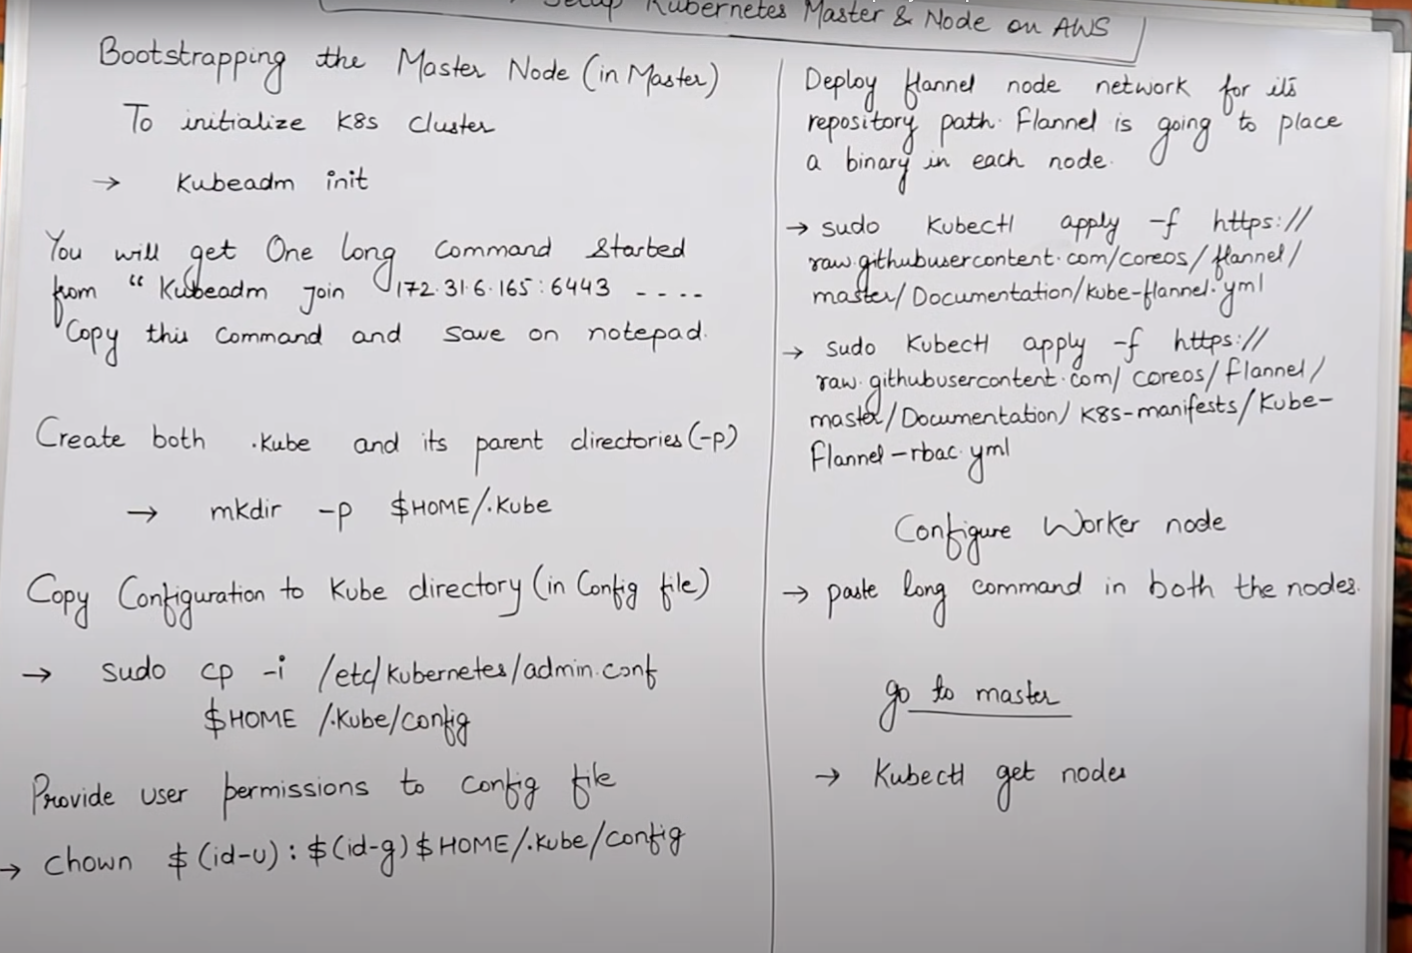 Setup Kubernetes Master & Node on AWS
Bootstrapping the Master Node (in Master)
To initialize K8s cluster
→ Kubeadm init
You will get One long Command Started
from “ Kubeadm Join 172.31.6.165:6443 ----
Copy this Command and Save on notepad.
Create both .Kube and its parent directories (-p)
→ mkdir -p $HOME/.Kube
Copy Configuration to Kube directory (in Config file)
→ sudo cp -i /etc/kubernetes/admin.conf
$HOME /.Kube/config
Provide user permissions to config file
→ chown $(id-u):$(id-g) $HOME/.Kube/config
Deploy flannel node network for its
repository path. Flannel is going to place
a binary in each node.
→ sudo Kubectl apply -f https://
raw.githubusercontent.com/coreos/flannel/
master/Documentation/kube-flannel.yml
→ sudo Kubectl apply -f https://
raw.githubusercontent.com/coreos/flannel/
master/Documentation/K8s-manifests/Kube-
flannel-rbac.yml
Configure Worker node
→ paste long command in both the nodes.
go to master
→ Kubectl get nodes